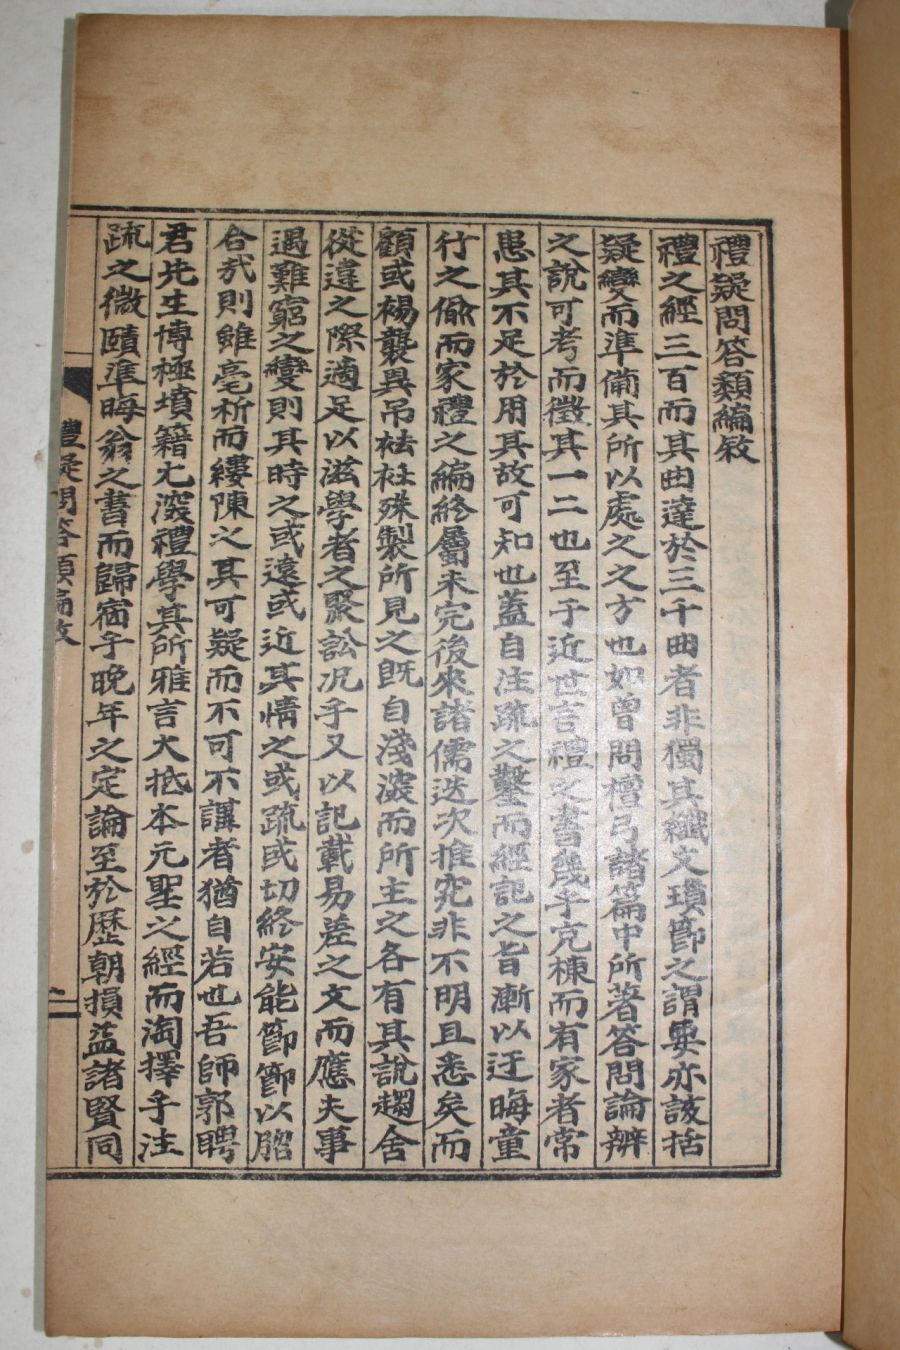 禮疑問答類編敘
禮之經三百而其曲達於三千曲者非獨其纖文瑣節之謂要亦該括
疑變而準備其所以處之之方也如曾問檀弓諸篇中所著答問論辨
之說可考而徵其一二也至于近世言禮之書幾乎充棟而有家者常
患其不足於用其故可知也蓋自注疏之鑿而經記之旨漸以迂晦童
行之偸而家禮之編終屬未完後來諸儒迭次推究非不明且悉矣而
顧或裼襲異吊袪衽殊製所見之旣自淺深而所主之各有其說趨舍
從違之際適足以滋學者之聚訟况乎又以記載易差之文而應夫事
遇難窮之變則其時之或遠或近其情之或疏或切終安能節節以脗
合哉則雖毫析而縷陳之其可疑而不可不講者猶自若也吾師郭聘
君先生博極墳籍尤深禮學其所雅言大抵本元聖之經而淘擇乎注
疏之微賾準晦翁之書而歸宿乎晚年之定論至於歷朝損益諸賢同
禮疑問答類編敘
一